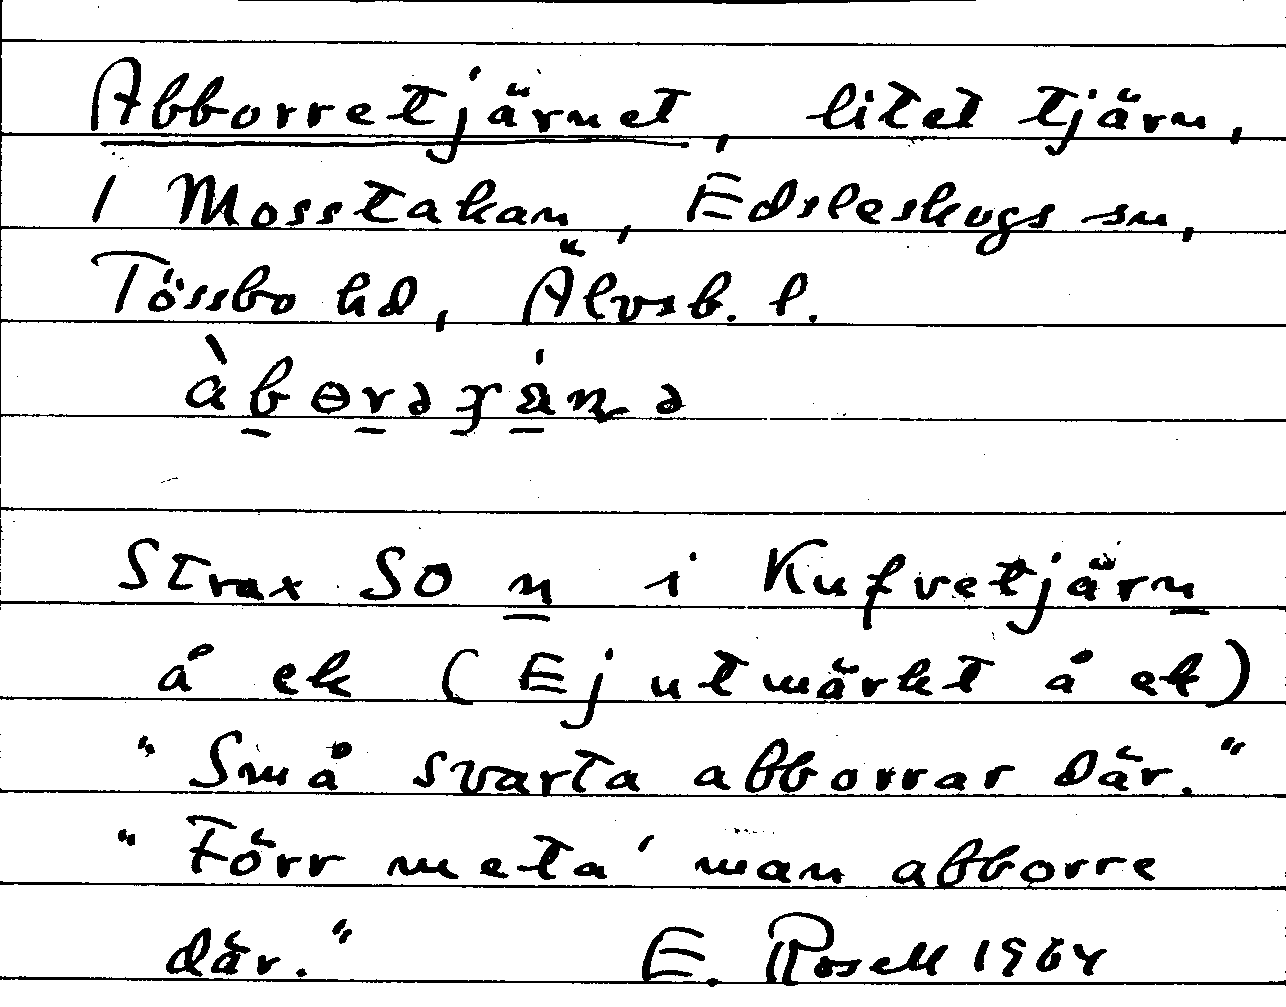 Abborretjärnet, litet tjärn,
I Mosstakan, Edsleskogs sn,
Tössbo hd, Älvsb. l.
Strax SO n i Kufvetjärn
å ek (Ej utmärkt å ek)
"Små svarta abborrar där."
"Förr meta' man abborre
där." E. Rosell 1964